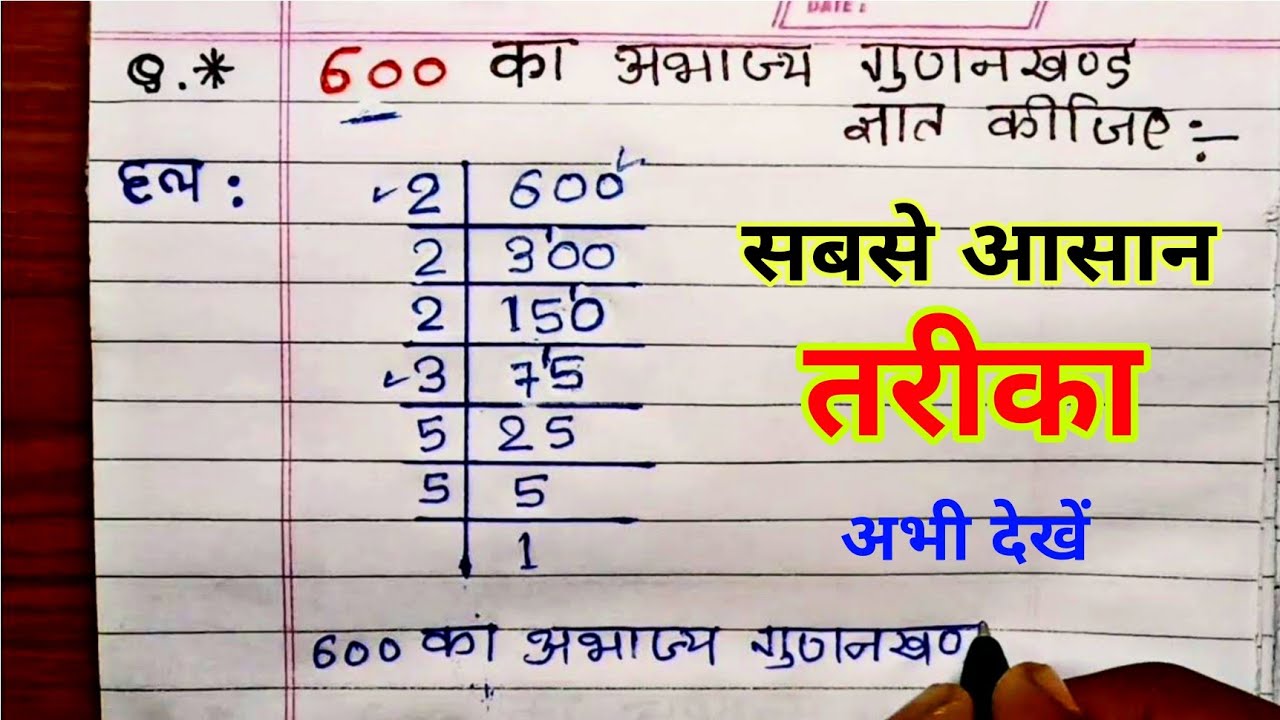 DATE :
Q.* 600 का अभाज्य गुणनखण्ड
ज्ञात कीजिए :-
हल :
2 600
2 300
2 150
3 75
5 25
5 5
1
सबसे आसान
तरीका
अभी देखें
600 का अभाज्य गुणनखण